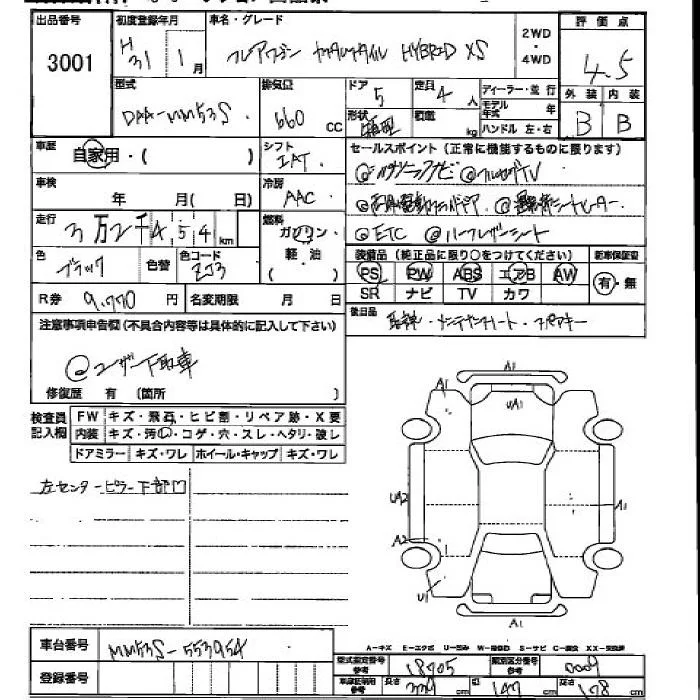 出品番号 初度登録年月 車名・グレード 2WD・4WD 評価点
3001 H31 1月 フレアワゴン カスタムスタイル HYBRID XS 4.5
型式 排気量 ドア 定員 ディーラー・並行 外装 内装
DAA-MM53S 660cc 5 4人 モデル年式 年 B B
形状 箱型 積載 kg ハンドル 左・右
車歴 自家用・( ) シフト IAT セールスポイント (正常に機能するものに限ります)
◎パナソニックナビ ◎フルセグTV
車検 年 月( 日) 冷房 AAC
◎両側電動スライドドア ◎運転席シートヒーター
走行 3万2千454km 燃料 ガソリン
◎ETC ◎ハーフレザーシート
色 ブラック 色替 色コード ZJ3 軽・油 ( )
装備品 (純正品に限り○をつけてください) 新車保証書
PS PW ABS エアB AW 有・無
SR ナビ TV カワ
R券 9,770円 名変期限 月 日
後日品 取説・メンテナンスノート・スペアキー
注意事項申告欄(不具合内容等は具体的に記入して下さい)
◎ユーザー下取車
修復歴 有 (箇所 )
検査員記入欄 FW キズ・飛石・ヒビ割・リペア跡・X要
内装 キズ・汚・コゲ・穴・スレ・ヘタリ・破レ
ドアミラー キズ・ワレ ホイール・キャップ キズ・ワレ
左センターピラー下部凹
A1
A1
UA1
UA2
A1
A2
U1
A1
A-キズ E-エクボ U-凹み W-補修凹 S-サビ C-腐食 XX-交換済
車台番号 MM53S-553954
登録番号
型式指定番号 参考 18705 類別区分番号 参考 0009
車庫証明用 参考 長さ 339cm 幅 147cm 高さ 178cm